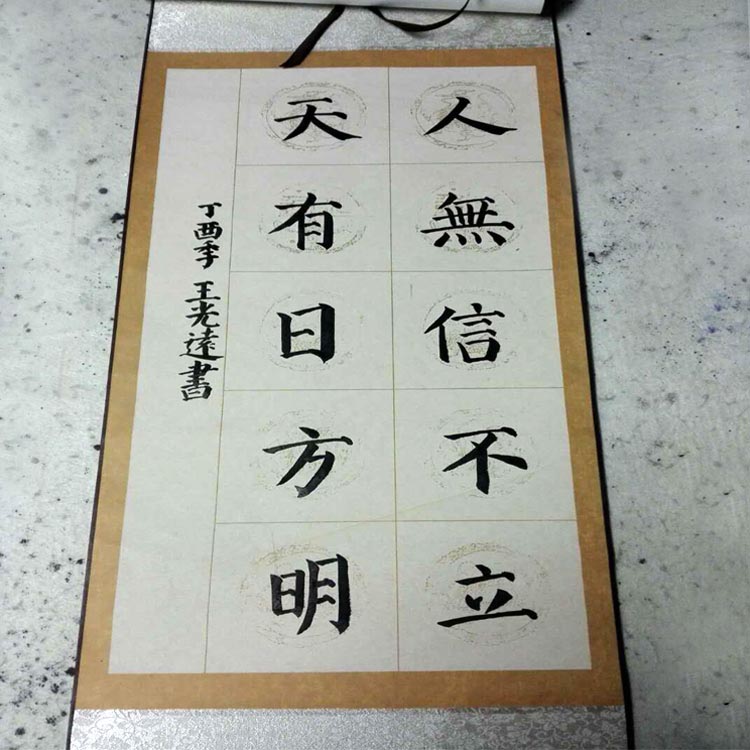 人無信不立
天有日方明
丁酉季王光遠書